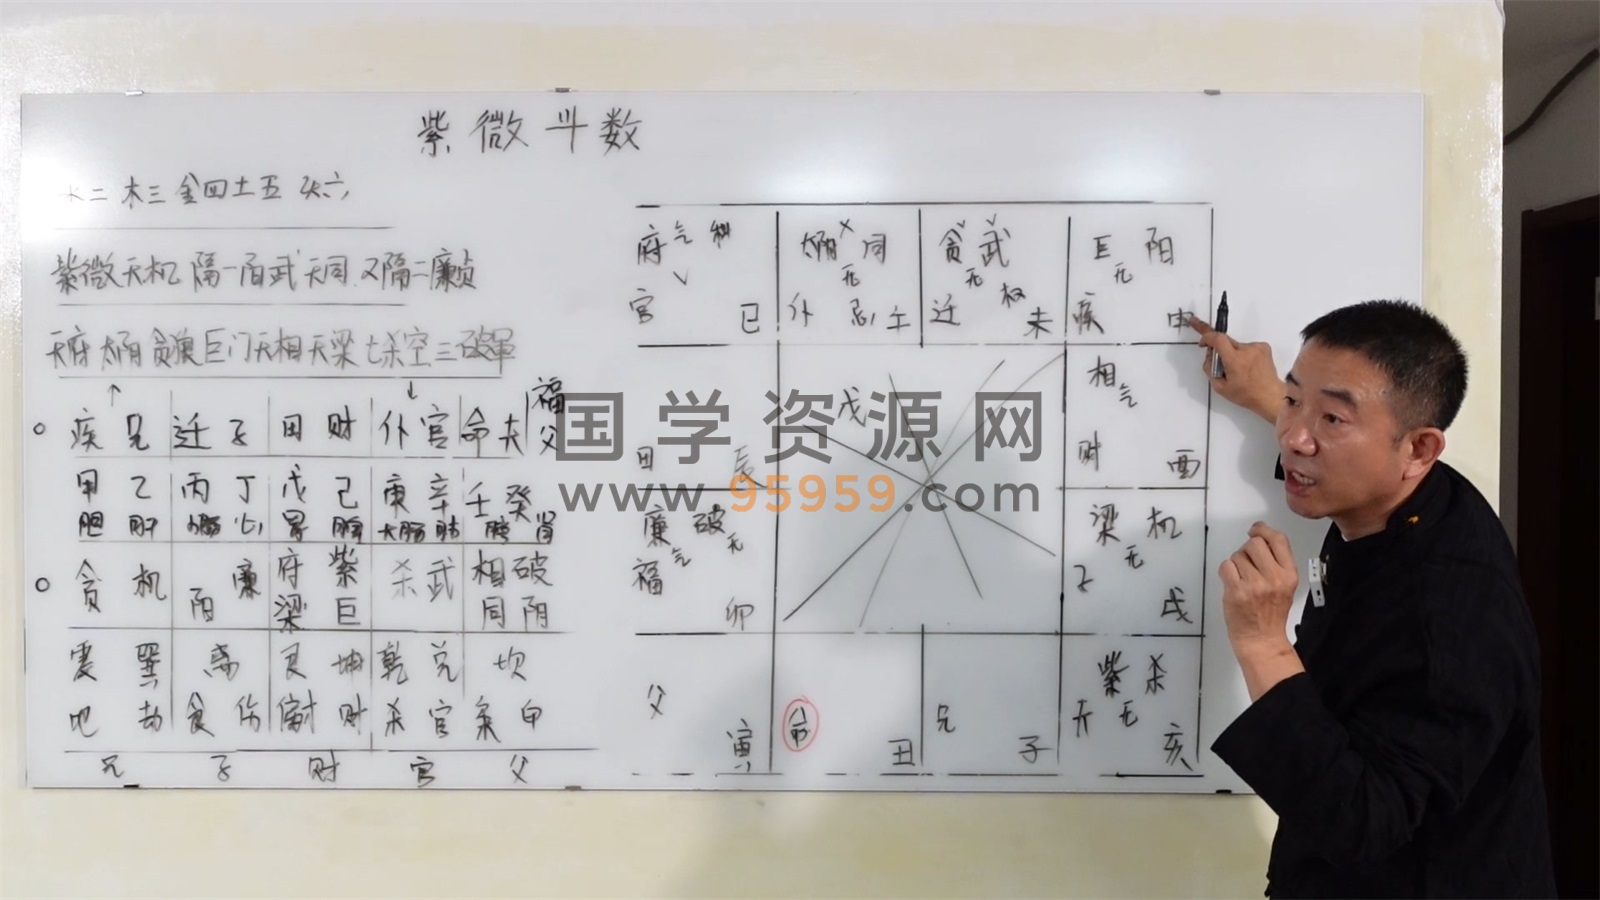 紫微斗数
水二 木三 金四 土五 火六
紫微天机 隔一阳武天同 又隔二廉贞
天府太阴贪狼巨门天相天梁七杀空三破军
↑ ↓ 福
疾 兄 迁 子 田 财 仆 官 命 夫 父
甲 乙 丙 丁 戊 己 庚 辛 壬 癸
胆 肝 小肠 心 胃 脾 大肠 肺 肾
贪 机 阳 廉 府 紫 杀 武 相 破
梁 巨 同 阴
震 巽 离 艮 坤 乾 兑 坎
劫 食 伤 财 杀 官 枭 印
兄 子 财 官 父
府 科 太阴 同 贪 武 巨 阳
无 无 无
官 巳 仆 忌 午 迁 权 未 疾 申
戊 相
田 辰 财 酉
廉 破 梁 机
无 无
福 卯 子 戌
紫 杀
父 寅 命 丑 兄 子 夫 无 亥
国学资源网
www.95959.com